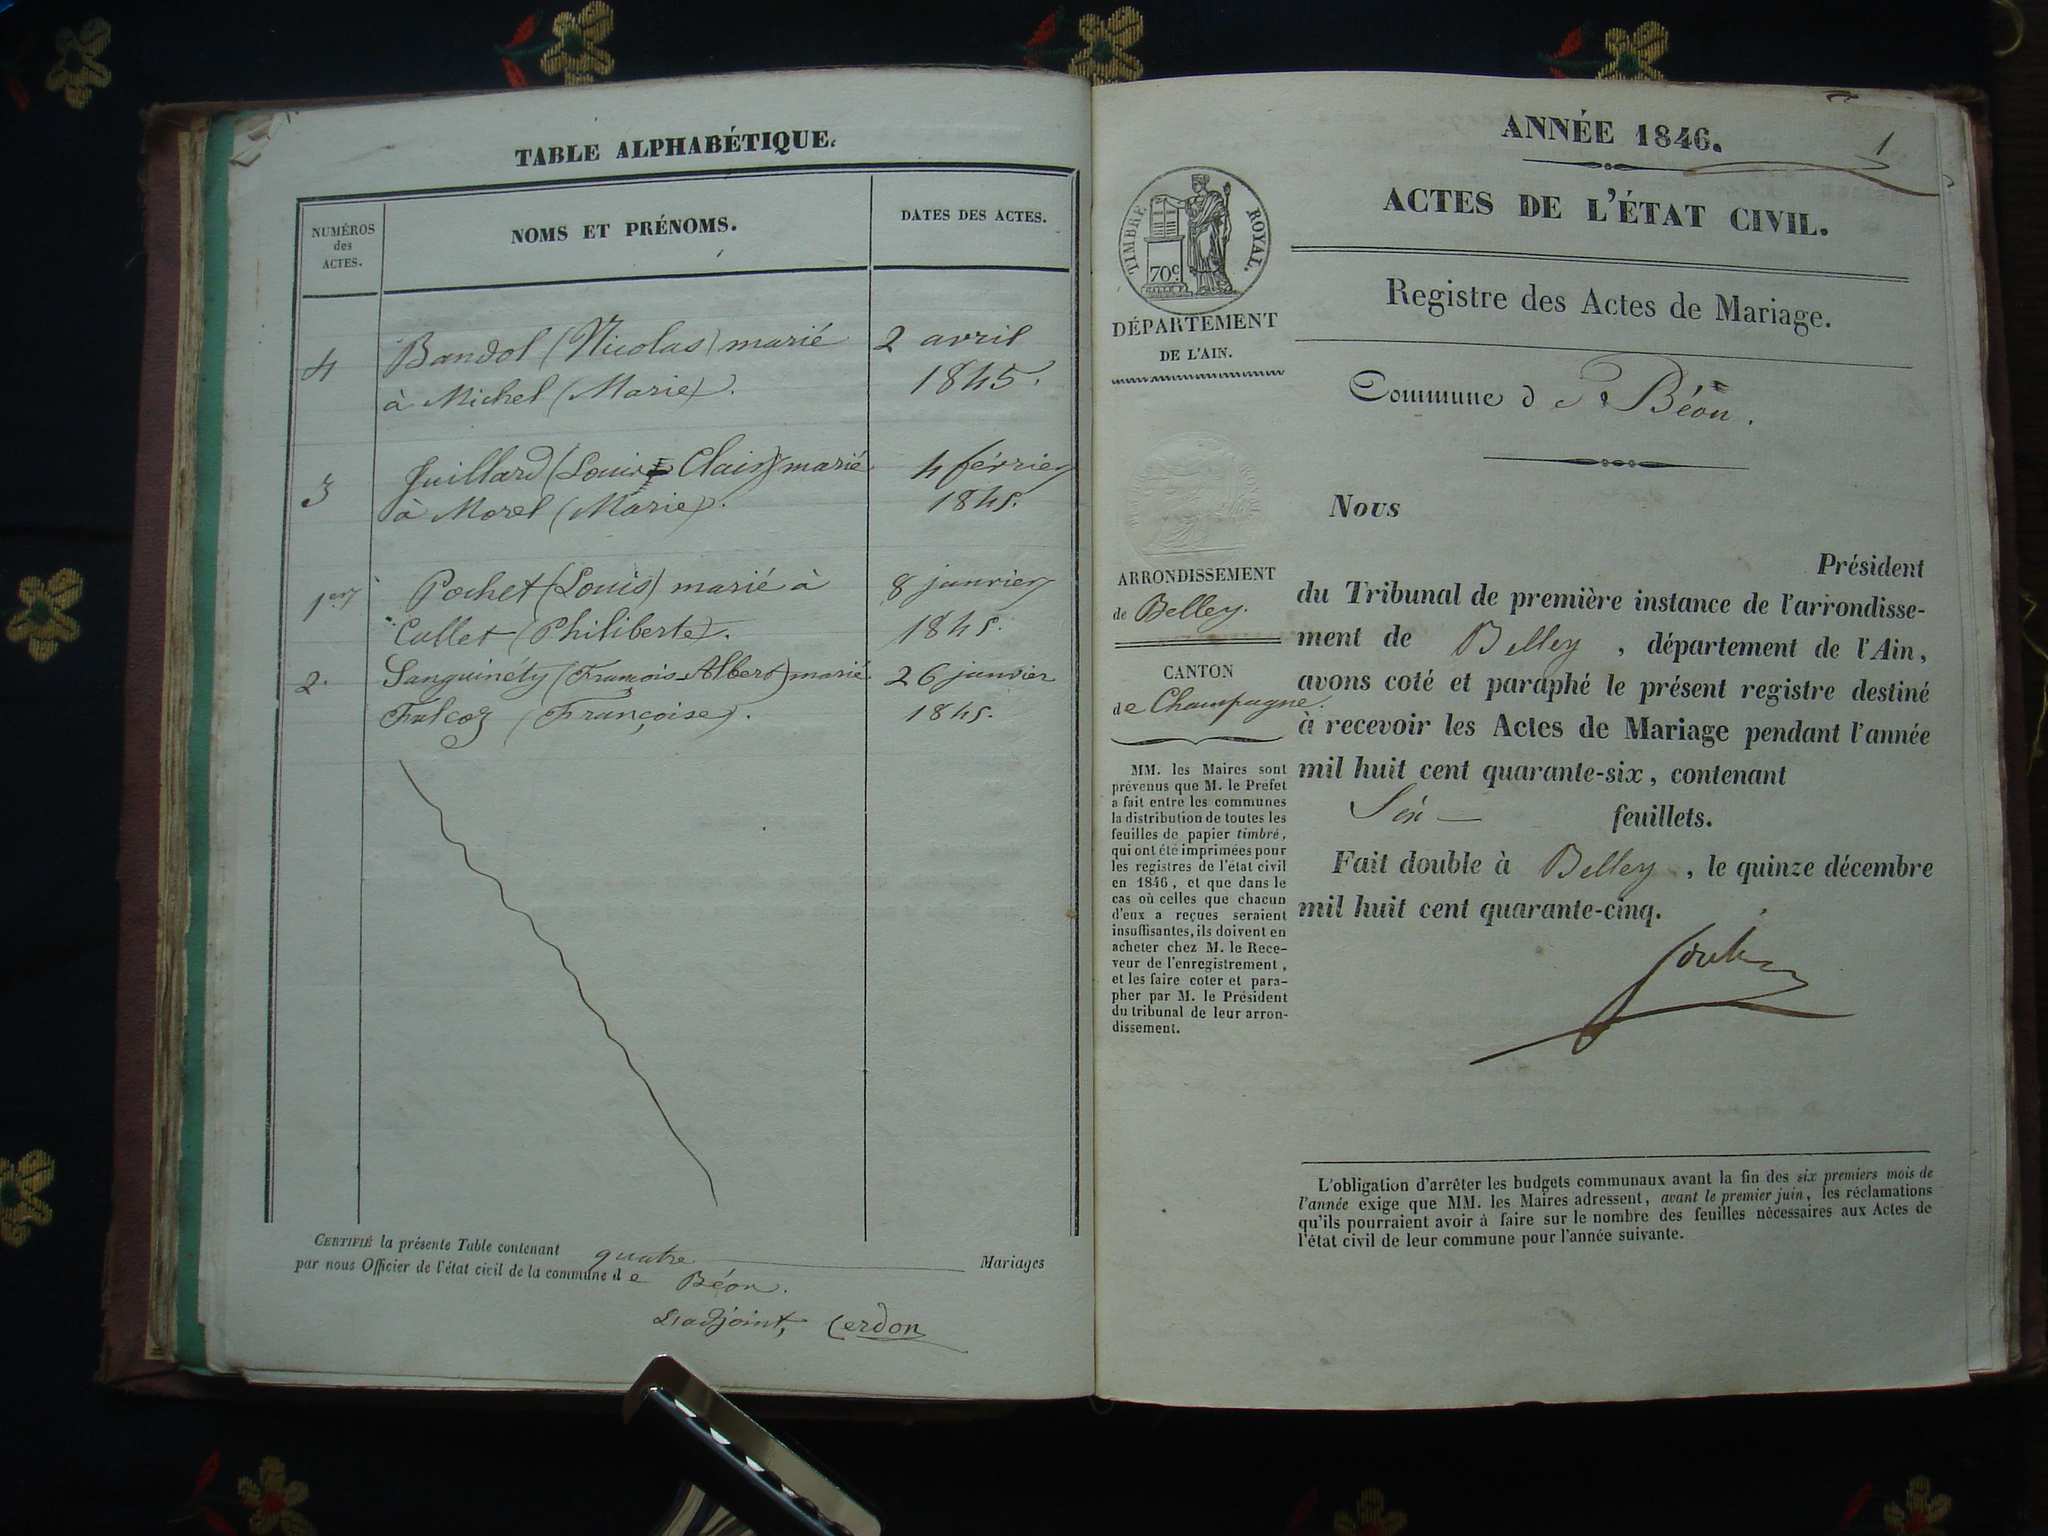 TABLE ALPHABÉTIQUE.
NUMÉROS
des
ACTES.
NOMS ET PRÉNOMS.
DATES DES ACTES.
4
Bandol (Nicolas) marié
à Michel (Marie).
2 avril
1845.
3
Juillard (Louis Clair) marié
à Morel (Marie).
4 février
1845.
1er
Pochet (Louis) marié à
Collet (Philiberte).
8 janvier
1845.
2.
Sanguinéty (François-Albert) marié
Falcoz (Françoise).
26 janvier
1845.
CERTIFIÉ la présente Table contenant quatre Mariages
par nous Officier de l'état civil de la commune de Béon.
L'adjoint, Cerdon
1
ANNÉE 1846.
ACTES DE L'ÉTAT CIVIL.
Registre des Actes de Mariage.
Commune d Béon.
TIMBRE ROYAL.
70c
DÉPARTEMENT
DE L'AIN.
ARRONDISSEMENT
de Belley.
CANTON
de Champagne.
MM. les Maires sont
prévenus que M. le Préfet
a fait entre les communes
la distribution de toutes les
feuilles de papier timbré,
qui ont été imprimées pour
les registres de l'état civil
en 1846, et que dans le
cas où celles que chacun
d'eux a reçues seraient
insuffisantes, ils doivent en
acheter chez M. le Rece-
veur de l'enregistrement,
et les faire coter et para-
pher par M. le Président
du tribunal de leur arron-
dissement.
Nous
Président
du Tribunal de première instance de l'arrondisse-
ment de Belley, département de l'Ain,
avons coté et paraphé le présent registre destiné
à recevoir les Actes de Mariage pendant l'année
mil huit cent quarante-six, contenant
Six feuillets.
Fait double à Belley, le quinze décembre
mil huit cent quarante-cinq.
L'obligation d'arrêter les budgets communaux avant la fin des six premiers mois de
l'année exige que MM. les Maires adressent, avant le premier juin, les réclamations
qu'ils pourraient avoir à faire sur le nombre des feuilles nécessaires aux Actes de
l'état civil de leur commune pour l'année suivante.